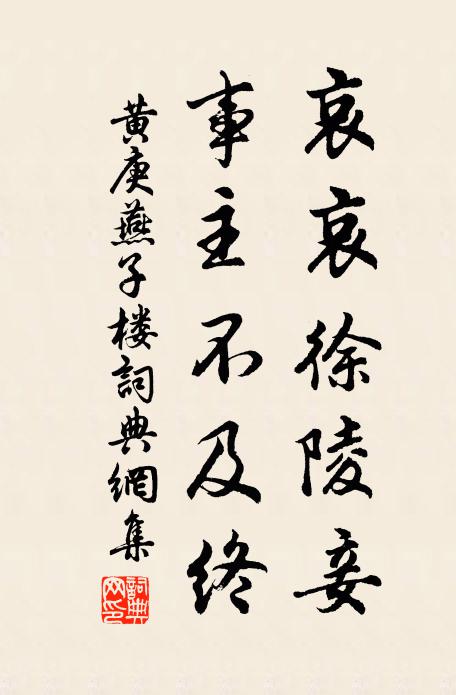 哀哀徐陵妾
事主不及终
黄庚燕子楼詞典網集
詞典网印